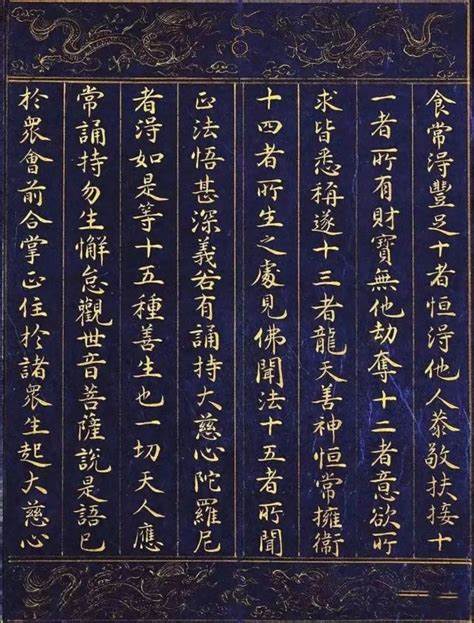 食常淂豐足十者恒淂他人恭敬扶接十
一者所有財寶無他劫奪十二者意欲所
求皆悉稱遂十三者龍天善神恒常擁衛
十四者所生之處見佛聞法十五者所聞
正法悟甚深義若有誦持大慈心陀羅尼
者淂如是等十五種善生也一切天人應
常誦持勿生懈怠觀世音菩薩說是語已
於眾會前合掌正住於諸眾生起大慈心